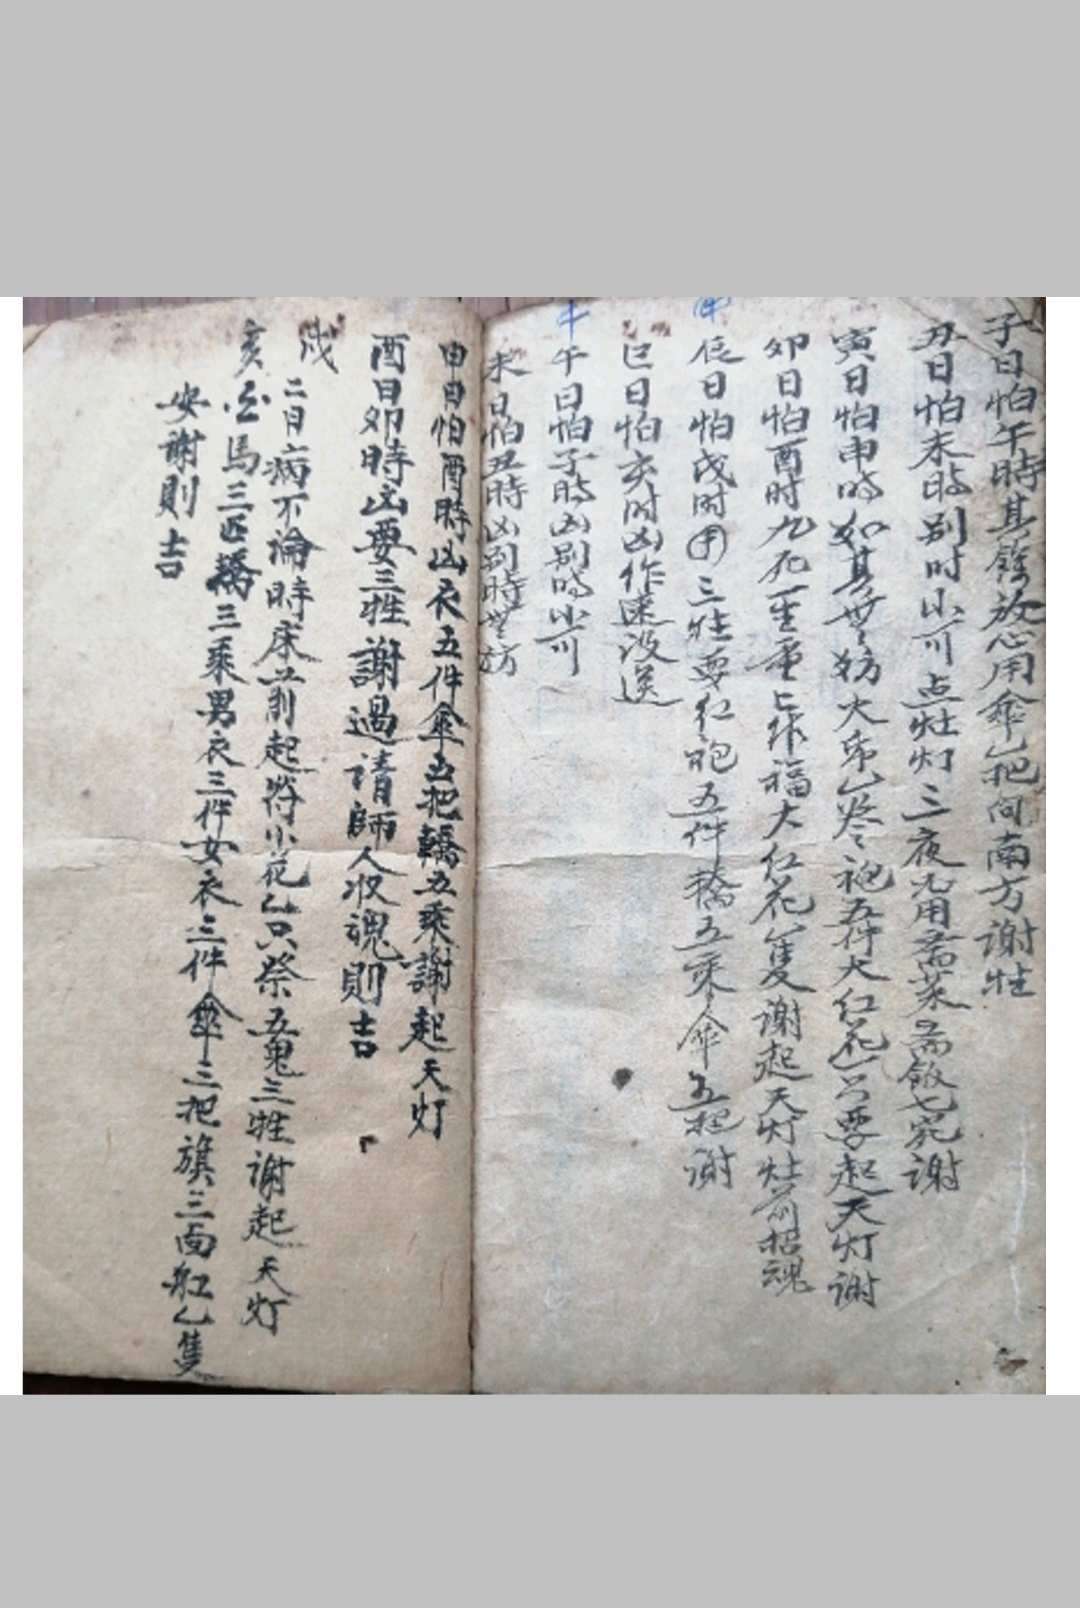 子日怕午時其餘放心用傘乙把向南方谢牲
丑日怕未時别时小可点灶灯三夜九用斋菜斋飯七宛谢
寅日怕申時如其世妨大吊袍五件大红花乙只要起天灯谢
卯日怕酉时九死一生重上作福大红花隻谢起天灯灶前招魂
辰日怕戌时用三牲要红袍五件轎五乘伞五把谢
巳日怕亥时凶作速没送
午
午日怕子時凶别時小可
未日怕丑時凶别時世妨
申日怕酉時凶衣五件傘五把轎五乘謝起天灯
酉日卯時凶要三牲謝過請師人收魂則吉
戌
亥
二日病不淪時床前起符小花乙只祭五鬼三牲谢起天灯
馬三匹轎三乘男衣三件女衣三件傘三把旗三面船乙隻
安謝則吉